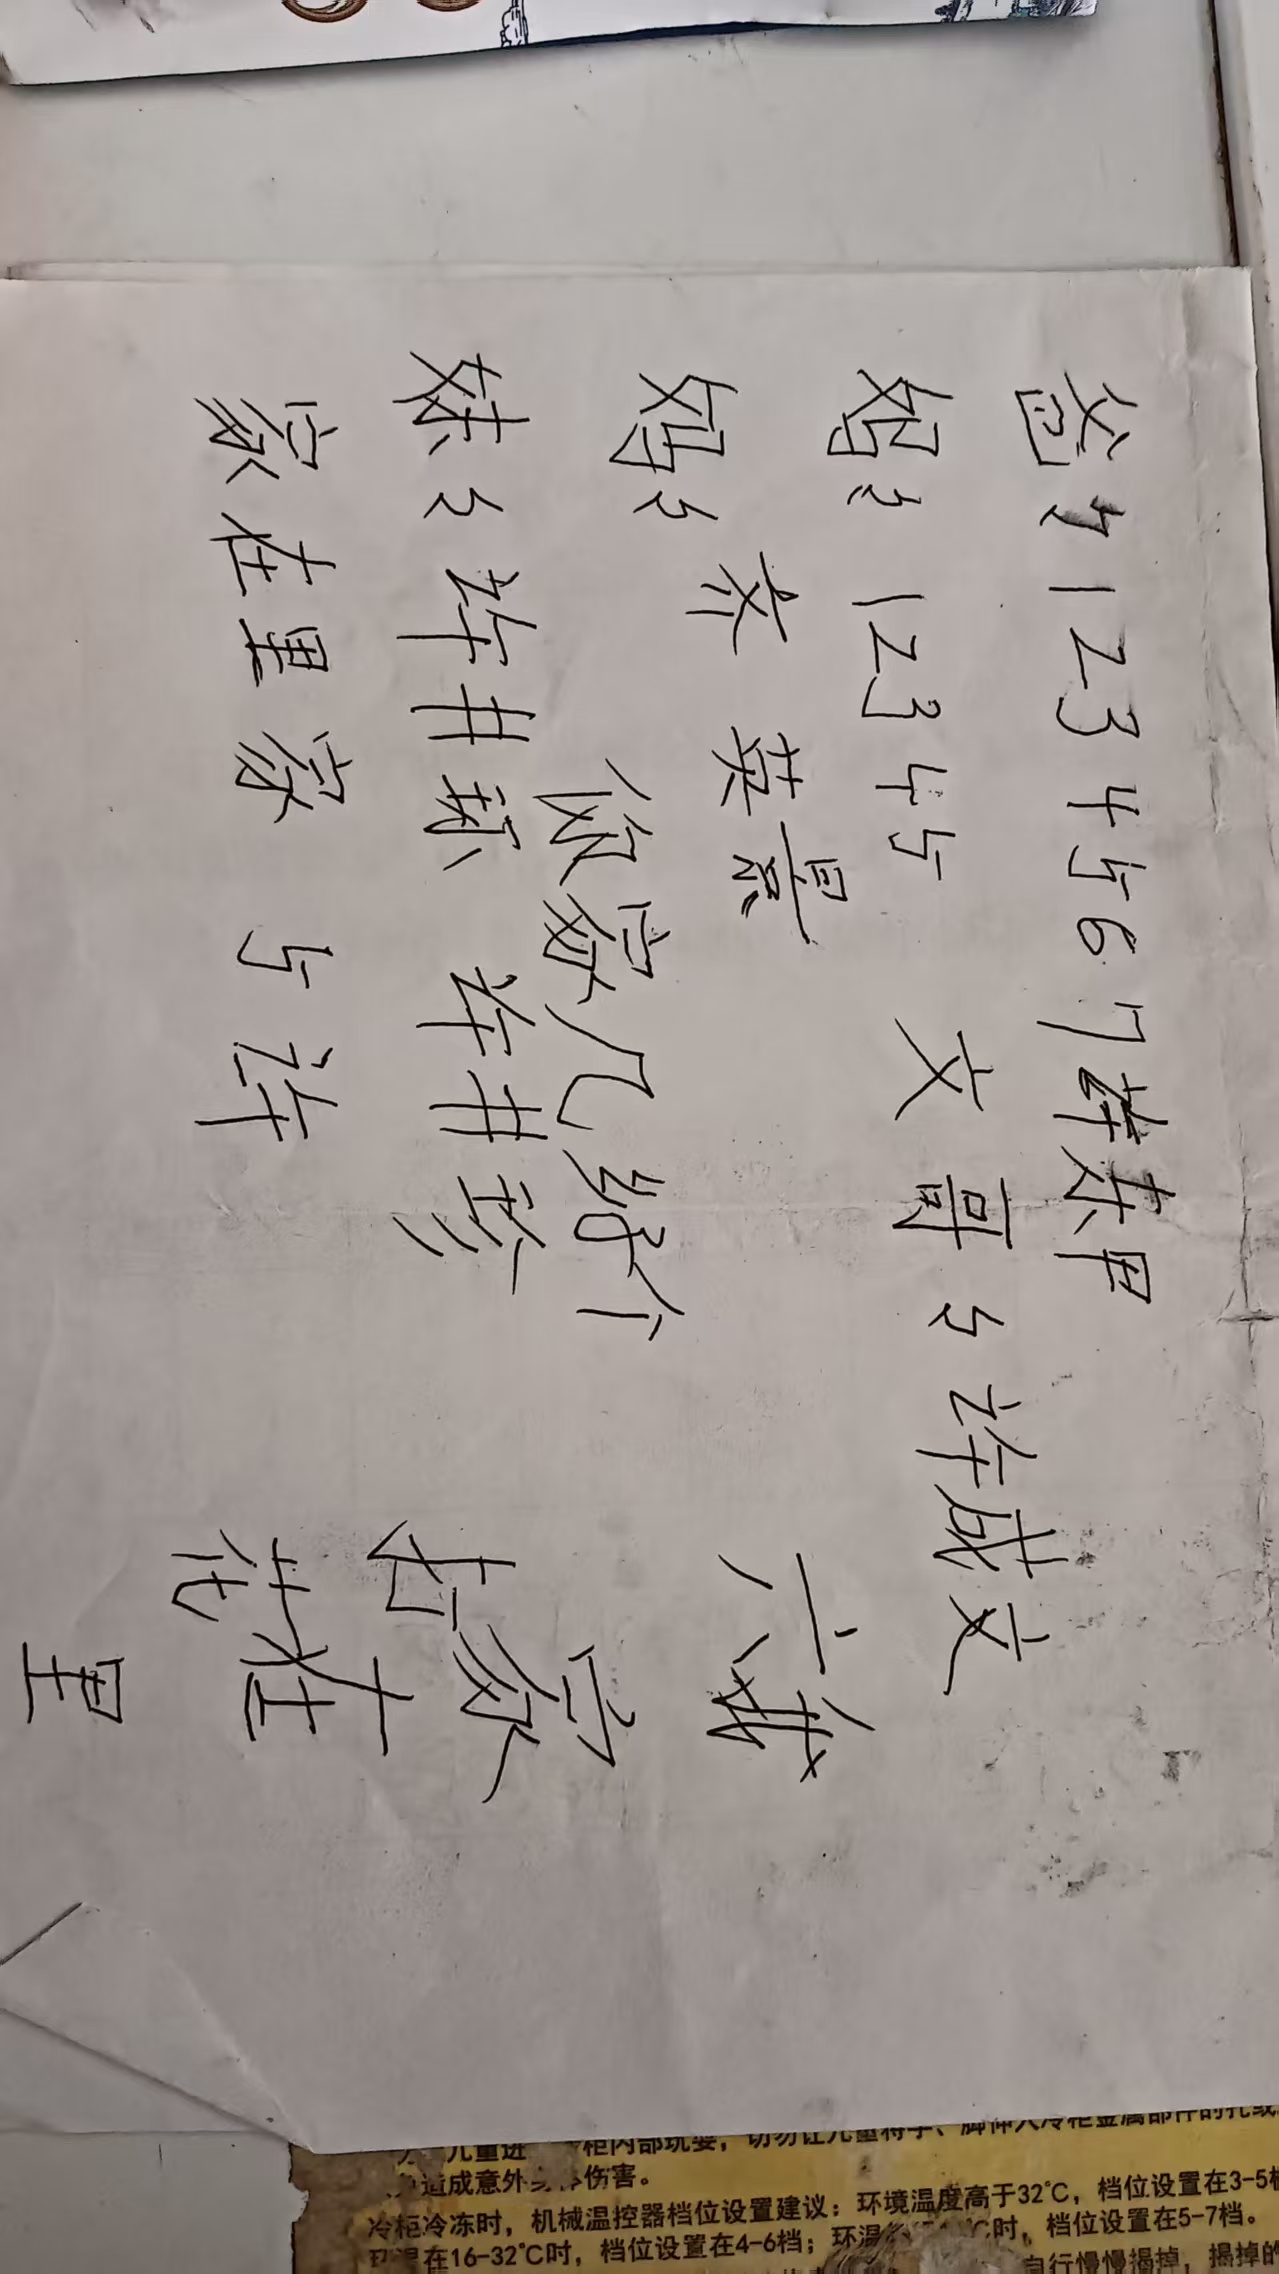 爸々1234567许末甲
妈々12345 文哥々许成文
妈々 齐英景
你家几好个
妹々许井颖 许井珍
家在里家 与许
六娥
家
右
在
花
里
儿童进 柜内部玩耍，切勿让儿童将手、脚伸入冷柜金属部件的孔或
造成意外 伤害。
冷柜冷冻时，机械温控器档位设置建议：环境温度高于32℃，档位设置在3-5档
在16-32℃时，档位设置在4-6档；环温 ℃时，档位设置在5-7档。
自行慢慢揭掉，揭掉的